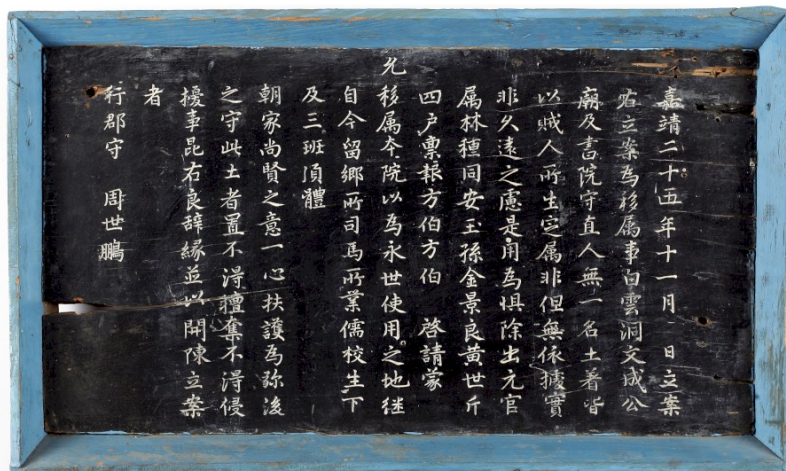 嘉靖二十五年十一月 日立案
右立案為移属事白雲洞文成公
廟及書院守直人無一名土着皆
以賊人所生定属非但無依據實
非久遠之慮是用為惧除出元官
属林種同安玉孫金景良黄世斤
四户禀報方伯方伯 啓請蒙
允移属本院以為永世使用之地継
自今留鄉所司馬所業儒校生下
及三班湏體
朝家尚賢之意一心扶護為弥後
之守此土者置不得擅棄不得侵
擾事昆右良辞縁並以開陳立案
者
行郡守 周世鵬